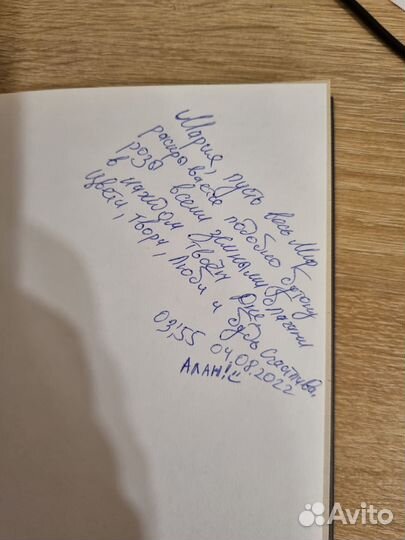 Мария, пусть весь Мир
раскрывается подобно бутону
розы всеми земными благами
в каждом твоём дне
Цвети, твори, люби и будь счастлива.
03:55 04.08.2022
АЛАН!
Avito